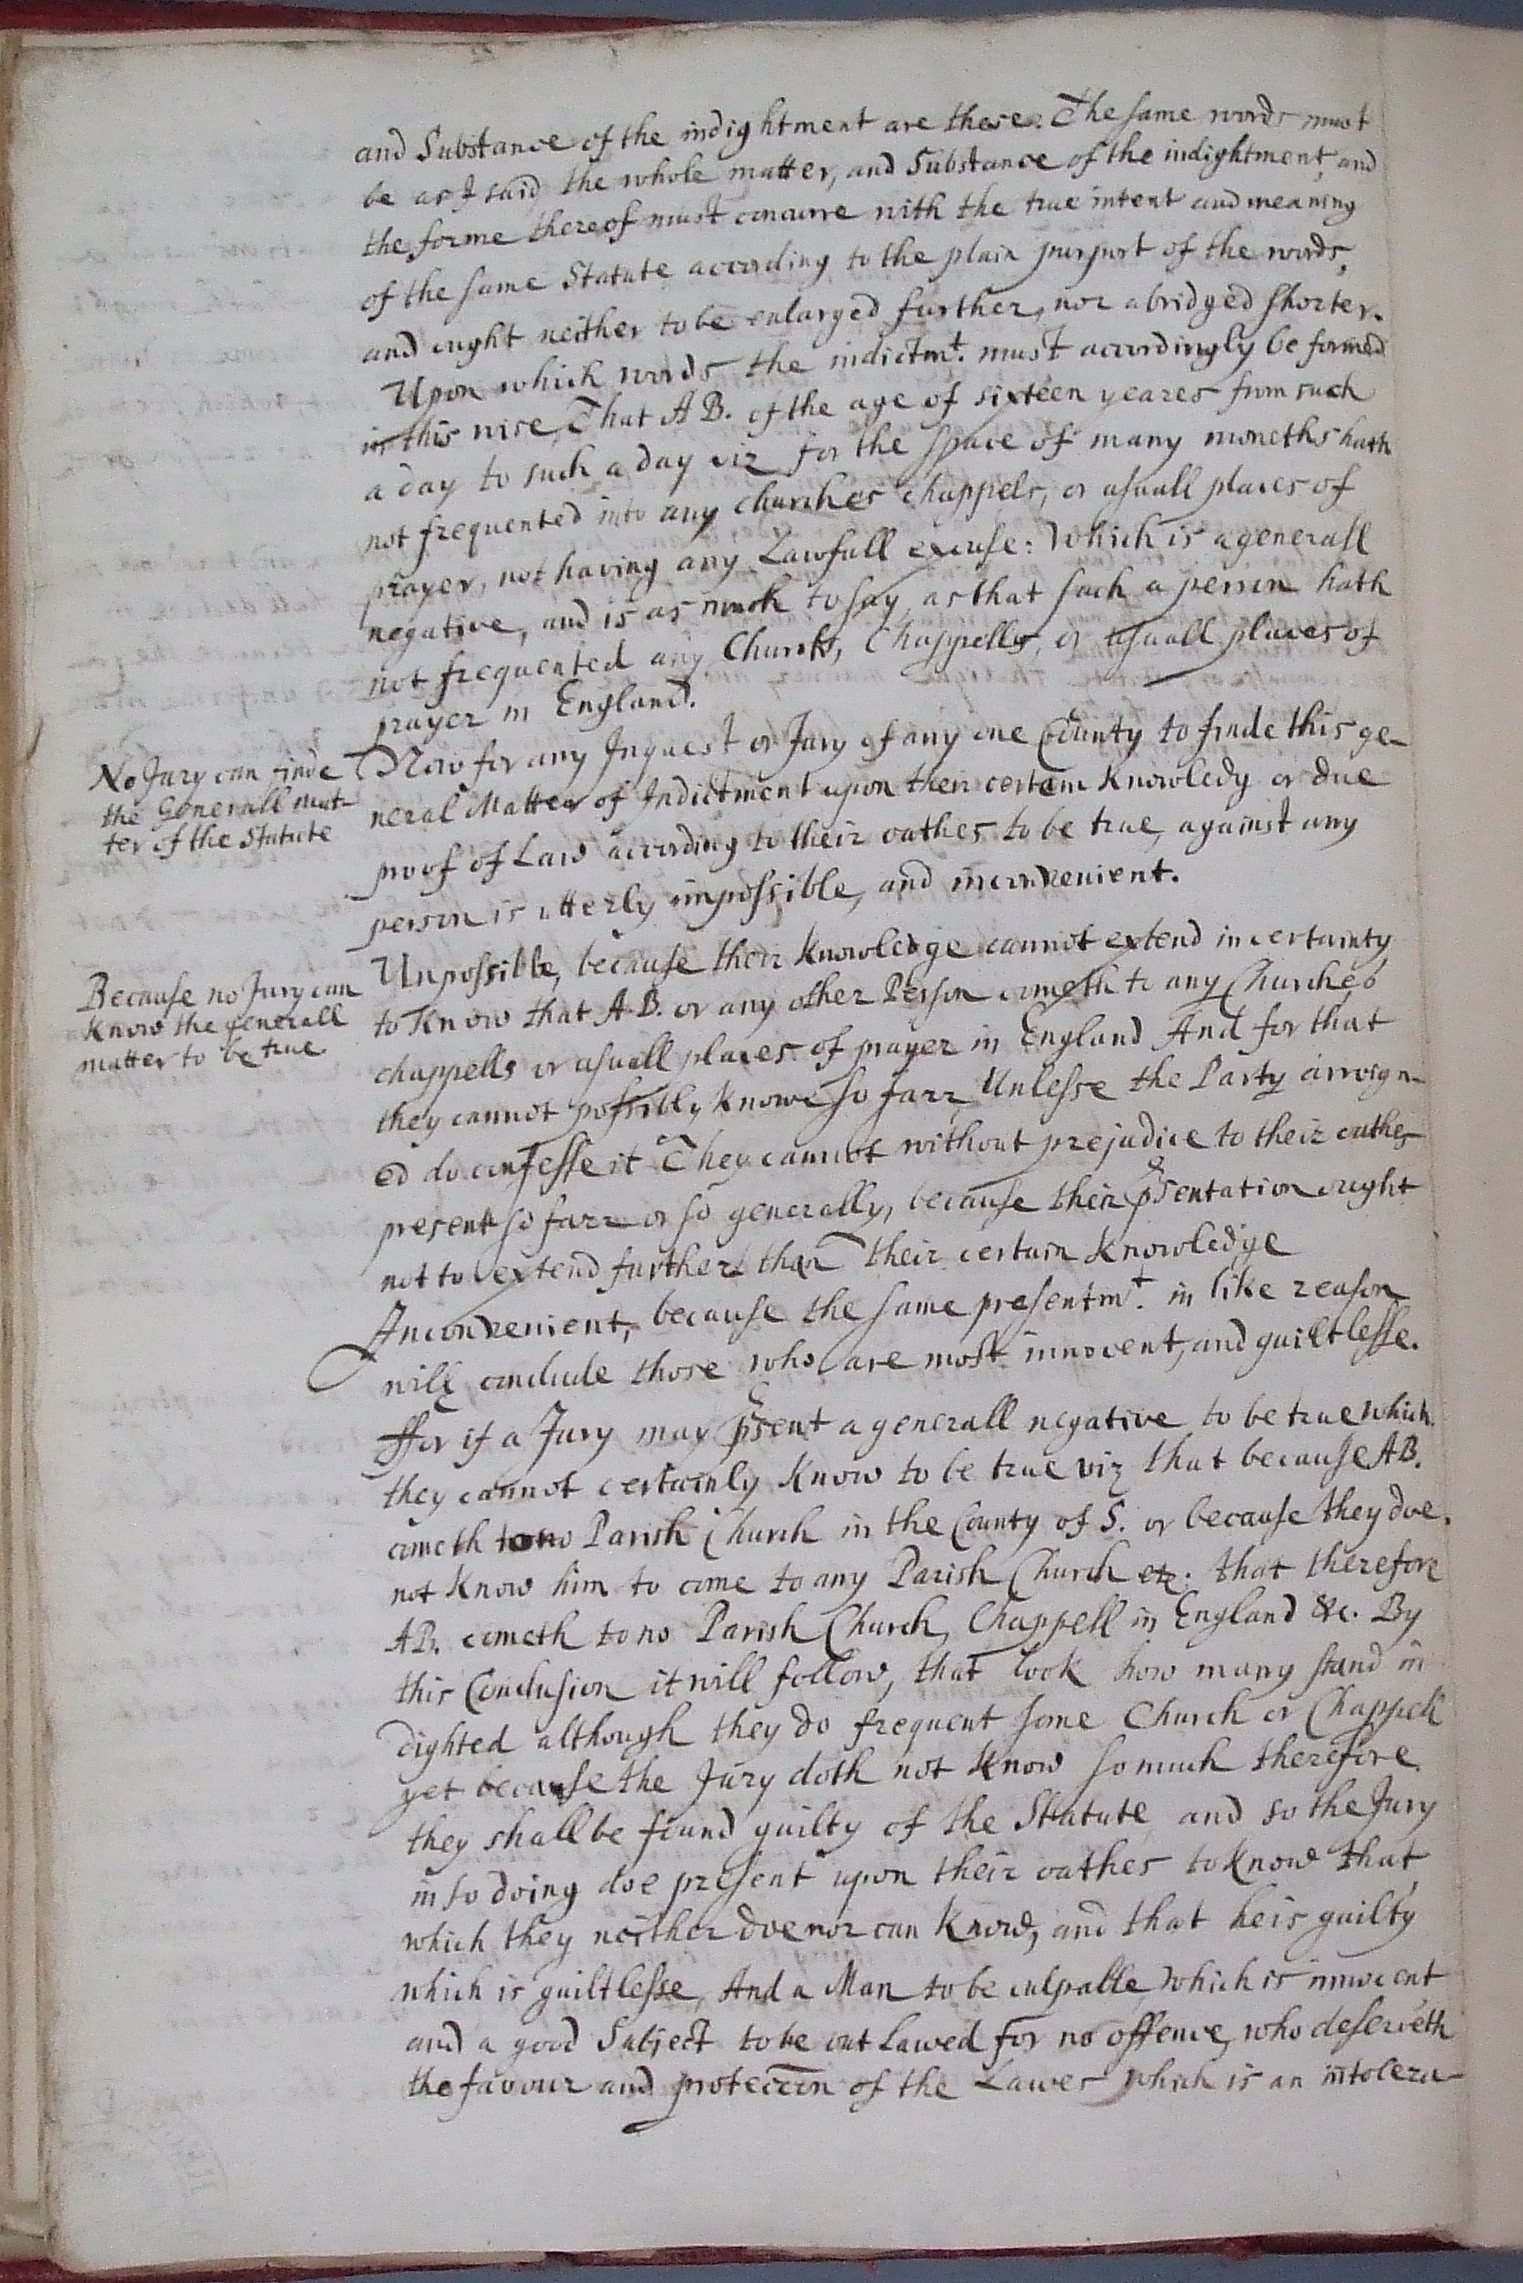 and Substance of the indightment are these. The same words must
be as I said the whole matter, and Substance of the indightment, and
the forme thereof must concurre with the true intent and meaning
of the same Statute according to the plain purport of the words,
and ought neither to be enlarged further, nor abridged shorter.
Upon which words the indictmt. must accordingly be formed
in this wise, That A B. of the age of sixteen yeares from such
a day to such a day viz for the space of many moneths hath
not frequented into any churches chappels, or usuall places of
prayer, not having any Lawfull excuse: Which is a generall
negative, and is as much to say, as that such a person hath
not frequented any Church, Chappells, or usuall places of
prayer in England.
No Jury can finde
the Generall mat-
ter of the Statute
Now for any Inquest or Jury of any one County to finde this ge-
neral Matter of Indictment upon their certain knowledg or due
proof of Law according to their oathes to be true, against any
person is utterly impossible, and inconvenient.
Because no Jury can
know the generall
matter to be true
Unpossible, because their knowledge cannot extend in certainty
to know that A.B. or any other Person cometh to any Churches
chappells or usuall places of prayer in England And for that
they cannot possibly knowe so farr Unlesse the Party arroign-
ed do confesse it They cannot without prejudice to their oathes
present so farr or so generally, because their psentation ought
not to extend further than their certain knowledge
Inconvenient, because the same presentmt. in like reason
will conclude those who are most innocent, and guiltlesse.
ffor if a Jury may psent a generall negative to be true which
they cannot certainly know to be true viz that because AB.
cometh to no Parish Church in the County of S. or because they doe
not know him to come to any Parish Church etc. that therefore
AB. cometh to no Parish Church, Chappell in England &c. By
this Conclusion it will follow, that look how many stand in
dighted although they do frequent some Church or Chappell
yet because the Jury doth not know so much therefore
they shall be found guilty of the Statute and so the Jury
in so doing doe present upon their oathes to know that
which they neither doe nor can know, and that he is guilty
which is guiltlesse, And a Man to be culpable which is innocent
and a good Subject to be out Lawed for no offence, who deserveth
the favour and proteccon of the Lawes which is an intolera-